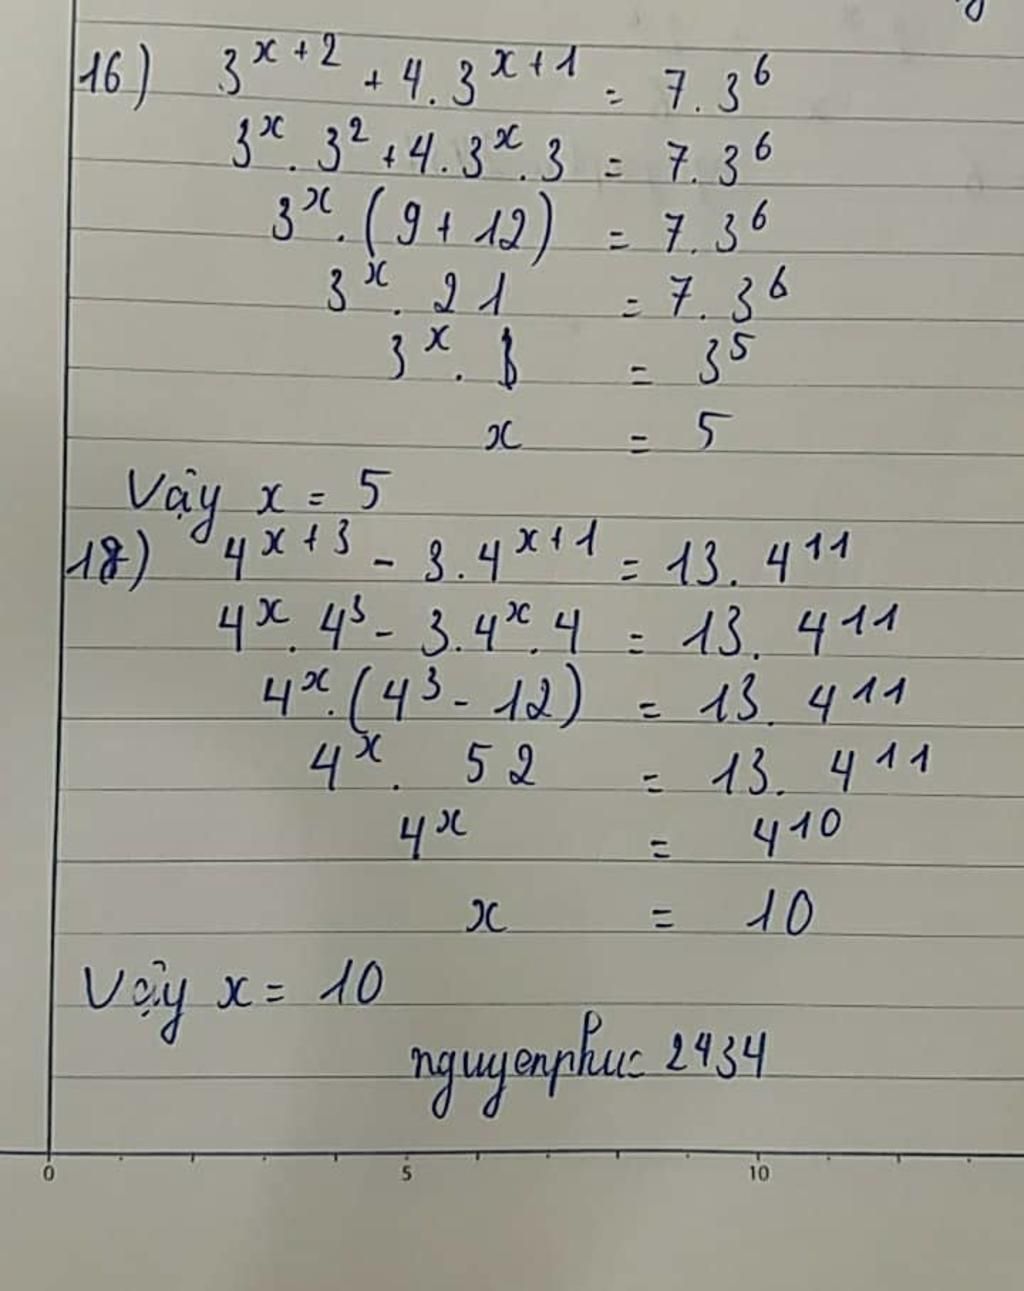 16) 3^{x+2} + 4.3^{x+1} = 7.3^6
3^x.3^2 + 4.3^x.3 = 7.3^6
3^x.(9+12) = 7.3^6
3^x.21 = 7.3^6
3^x.1 = 3^5
x = 5
Vậy x = 5
18) 4^{x+3} - 3.4^{x+1} = 13.4^{11}
4^x.4^3 - 3.4^x.4 = 13.4^{11}
4^x.(4^3 - 12) = 13.4^{11}
4^x.52 = 13.4^{11}
4^x = 4^{10}
x = 10
Vậy x = 10
nguyenphuc 2434
0 5 10